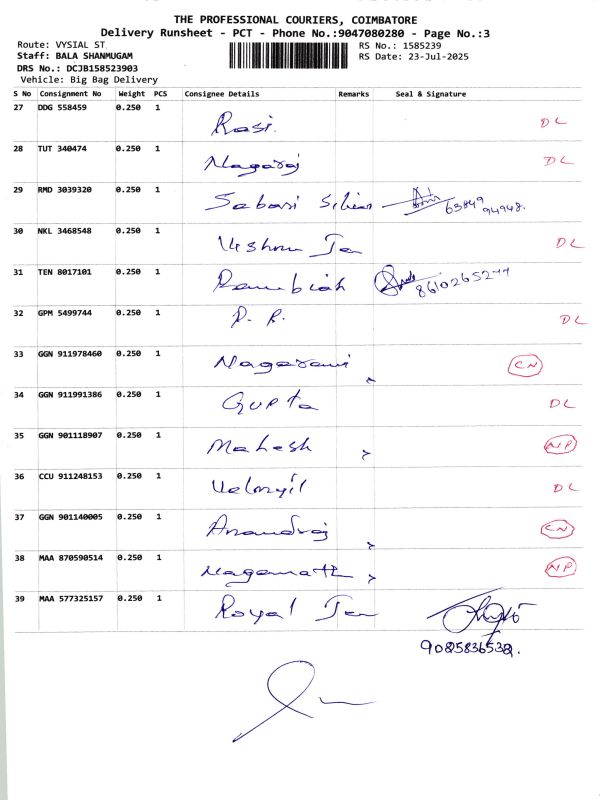 THE PROFESSIONAL COURIERS, COIMBATORE
Delivery Runsheet - PCT - Phone No.:9047080280 - Page No.:3
Route: VYSIAL ST. RS No.: 1585239
Staff: BALA SHANMUGAM RS Date: 23-Jul-2025
DRS No.: DCJB158523903
Vehicle: Big Bag Delivery
S No Consignment No Weight PCS Consignee Details Remarks Seal & Signature
27 DDG 558459 0.250 1 Rasi. DL
28 TUT 340474 0.250 1 Nagaraj DL
29 RMD 3039320 0.250 1 Sabari 63849
94948.
30 NKL 3468548 0.250 1 DL
31 TEN 8017101 0.250 1 Rambiah
32 GPM 5499744 0.250 1 P. R. DL
33 GGN 911978460 0.250 1 Nagarani CN
34 GGN 911991386 0.250 1 Gupta DL
35 GGN 901118907 0.250 1 Mahesh NP
36 CCU 911248153 0.250 1 DL
37 GGN 901140005 0.250 1 Anandraj CN
38 MAA 870590514 0.250 1 NP
39 MAA 577325157 0.250 1 Royal